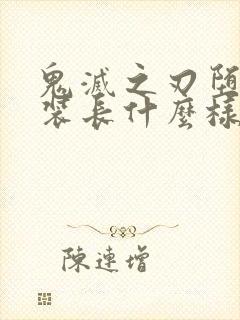 鬼滅之刃堕
裝長什麼樣
陳連增